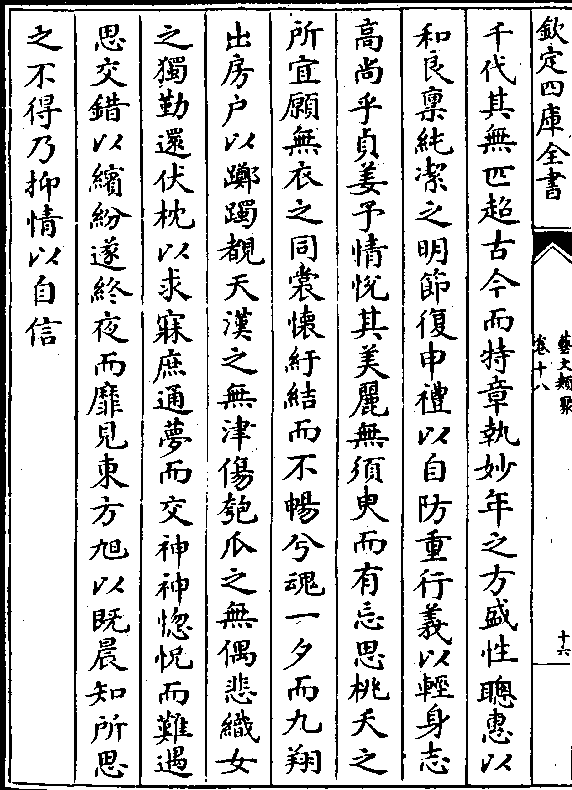 欽定四庫全書
藝文類聚
卷十八
十六
千代其無匹超古今而特章執妙年之方盛性聰惠以
和良稟純潔之明節復申禮以自防重行義以輕身志
高尚乎貞姜予情恱其美麗無須臾而有忘思桃夭之
所宜願無衣之同裳懷紆結而不暢兮魂一夕而九翔
出房户以躑躅覩天漢之無津傷匏瓜之無偶悲織女
之獨勤還伏枕以求寐庶通夢而交神神惚怳而難遇
思交錯以繽紛遂終夜而靡見東方旭以既晨知所思
之不得乃抑情以自信